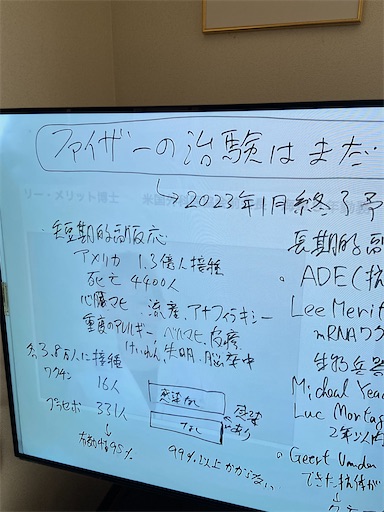 ファイザーの治験はまだ
→2023年1月終了予
リー・メリット博士
短期的副反応
アメリカ 1.3億人接種
死亡 4400人
心臓マヒ・流産・アナフィラキシー
重度のアレルギー・ベルマヒ・皮疹
けいれん・失明・脳卒中
各3.8万人に接種
ワクチン 16人
プラセボ 331人
↓
有効性95%
感染なし
なし
感染
あり
99%以上かからない
長期的副
ADE(抗
Lee Merit
mRNAワク
生物兵器
Micheal Yead
Luc Montag
2年以内
Geert Vanden
できた抗体が
↓